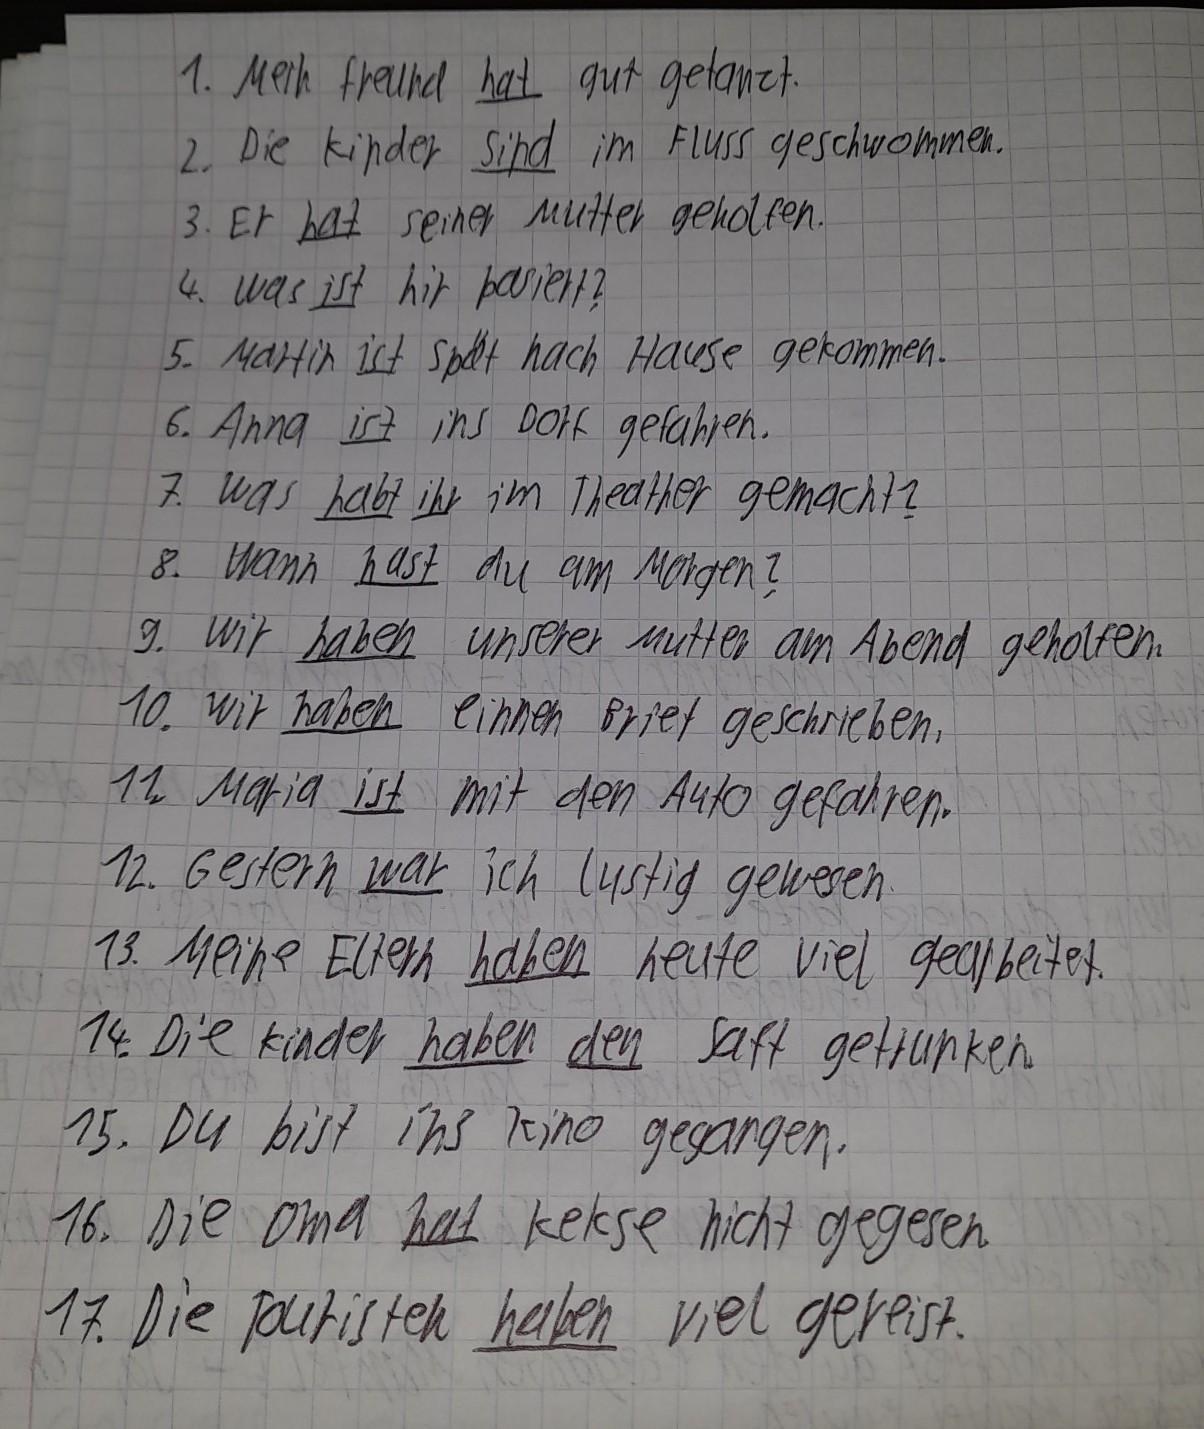 1. Mein freund hat gut getanzt.
2. Die kinder sind im Fluss geschwommen.
3. Er hat seiner Mutter geholfen.
4. Was ist hir pasiert?
5. Martin ist spät nach Hause gekommen.
6. Anna ist ins Dorf gefahren.
7. Was habt ihr im Theather gemacht?
8. Wann hast du am Morgen?
9. Wir haben unserer Mutter am Abend geholfen.
10. Wir haben einnen Brief geschrieben.
11. Maria ist mit den Auto gefahren.
12. Gestern war ich lustig gewesen.
13. Meine Eltern haben heute viel gearbeitet.
14. Die kinder haben den Saft getrunken.
15. Du bist ins kino gegangen.
16. Die Oma hat kekse nicht gegesen.
17. Die Touristen haben viel gereist.